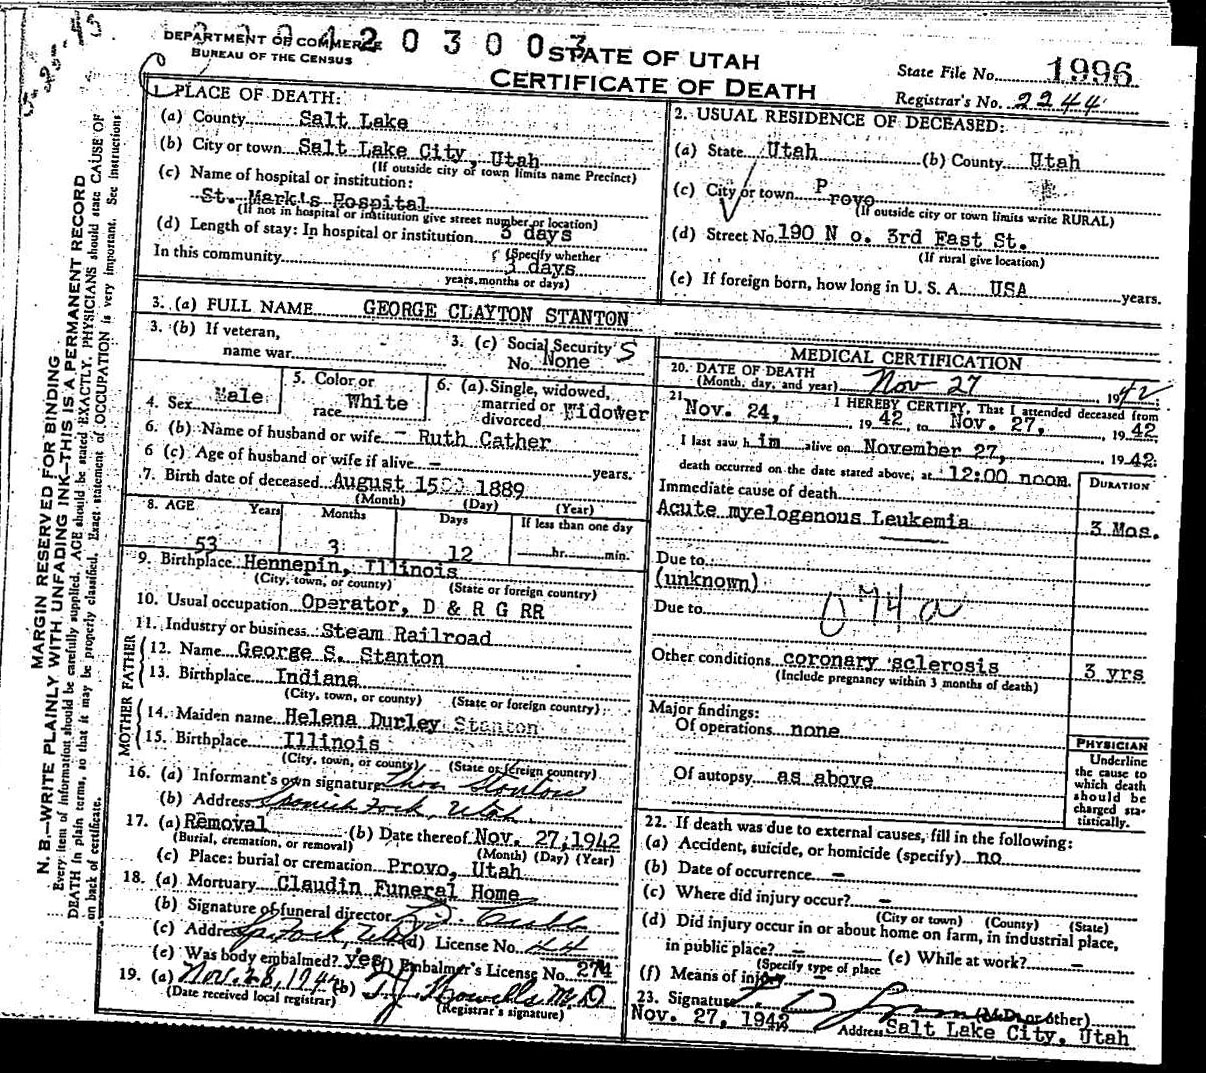 DEPARTMENT OF COMMERCE
BUREAU OF THE CENSUS
2 0 3 0 0 3
STATE OF UTAH
CERTIFICATE OF DEATH
State File No. 1996
Registrar's No. 2244
MARGIN RESERVED FOR BINDING
N. B.—WRITE PLAINLY WITH UNFADING INK—THIS IS A PERMANENT RECORD
Every item of information should be carefully supplied. AGE should be stated EXACTLY. PHYSICIANS should state CAUSE OF
DEATH in plain terms, so that it may be properly classified. Exact statement of OCCUPATION is very important. See Instructions
on back of certificate.
1. PLACE OF DEATH:
(a) County Salt Lake
(b) City or town Salt Lake City, Utah
(If outside city or town limits name Precinct)
(c) Name of hospital or institution:
St. Mark's Hospital
(If not in hospital or institution give street number or location)
(d) Length of stay: In hospital or institution 3 days
(Specify whether
In this community 3 days
years, months or days)
2. USUAL RESIDENCE OF DECEASED:
(a) State Utah (b) County Utah
(c) City or town Provo
(If outside city or town limits write RURAL)
(d) Street No. 190 N o. 3rd East St.
(If rural give location)
(e) If foreign born, how long in U. S. A. USA years.
3. (a) FULL NAME GEORGE CLAYTON STANTON
3. (b) If veteran,
name war
3. (c) Social Security S
No. None
4. Sex Male
5. Color or
race White
6. (a) Single, widowed,
married or
divorced Widower
6. (b) Name of husband or wife - Ruth Cather
6 (c) Age of husband or wife if alive - years.
7. Birth date of deceased August 15 1889
(Month) (Day) (Year)
8. AGE Years Months Days If less than one day
53 3 12 hr. min.
9. Birthplace Hennepin, Illinois
(City, town, or county) (State or foreign country)
10. Usual occupation Operator, D & R G RR
11. Industry or business Steam Railroad
FATHER
12. Name George S. Stanton
13. Birthplace Indiana
(City, town, or county) (State or foreign country)
MOTHER
14. Maiden name Helena Durley Stanton
15. Birthplace Illinois
(City, town, or county) (State or foreign country)
16. (a) Informant's own signature Thos Stanton
(b) Address Spanish Fork, Utah
17. (a) Removal (b) Date thereof Nov. 27, 1942
(Burial, cremation, or removal) (Month) (Day) (Year)
(c) Place: burial or cremation Provo, Utah
18. (a) Mortuary Claudin Funeral Home
(b) Signature of funeral director
(c) Address Sp. Fork, Utah (d) License No. 44
(e) Was body embalmed? yes (f) Embalmer's License No. 274
19. (a) Nov. 28, 1942 (b) T. J. Howells M.D
(Date received local registrar) (Registrar's signature)
MEDICAL CERTIFICATION
20. DATE OF DEATH
(Month, day, and year) Nov 27 1942
21. I HEREBY CERTIFY, That I attended deceased from
Nov. 24, 1942 to Nov. 27, 1942
I last saw him alive on November 27, 1942
death occurred on the date stated above, at 12:00 noon.
DURATION
Immediate cause of death
Acute myelogenous Leukemia 3 Mos.
Due to
(unknown)
074a
Due to
Other conditions coronary sclerosis 3 yrs
(Include pregnancy within 3 months of death)
Major findings:
Of operations none
Of autopsy as above
PHYSICIAN
Underline
the cause to
which death
should be
charged sta-
tistically.
22. If death was due to external causes, fill in the following:
(a) Accident, suicide, or homicide (specify) no
(b) Date of occurrence -
(c) Where did injury occur? -
(City or town) (County) (State)
(d) Did injury occur in or about home on farm, in industrial place,
in public place? - (e) While at work? -
(Specify type of place
(f) Means of injury -
23. Signature
(M.D. or other)
Nov. 27, 1942 Address Salt Lake City, Utah